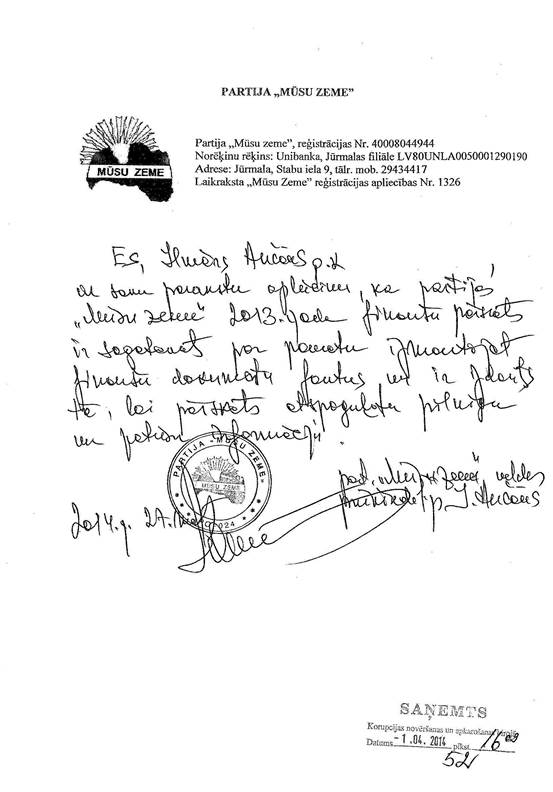 PARTIJA „MŪSU ZEME”
MŪSU ZEME
Partija „Mūsu zeme”, reģistrācijas Nr. 40008044944
Norēķinu rēķins: Unibanka, Jūrmalas filiāle LV80UNLA0050001290190
Adrese: Jūrmala, Stabu iela 9, tālr. mob. 29434417
Laikraksta „Mūsu Zeme” reģistrācijas apliecības Nr. 1326
Es, Ilmārs Ančāns p.k
ar savu parakstu apliecinu, ka partijas
„Mūsu zeme” 2013. gada finanšu pārskats
ir sagatavots par pamatu izmantojot
finanšu dokumentu un ir izdarīts
tā, lai pārskats atspoguļotu pilnīgu
un patiesu informāciju.
PARTIJA «MŪSU ZEME»
MŪSU ZEME
part. „Mūsu zeme” valdes
priekšsēd. I. Ančans
2014.g. 27.
SAŅEMTS
Korupcijas novēršanas un apkarošanas birojā
Datums -1.04.2014 plkst. 16
52